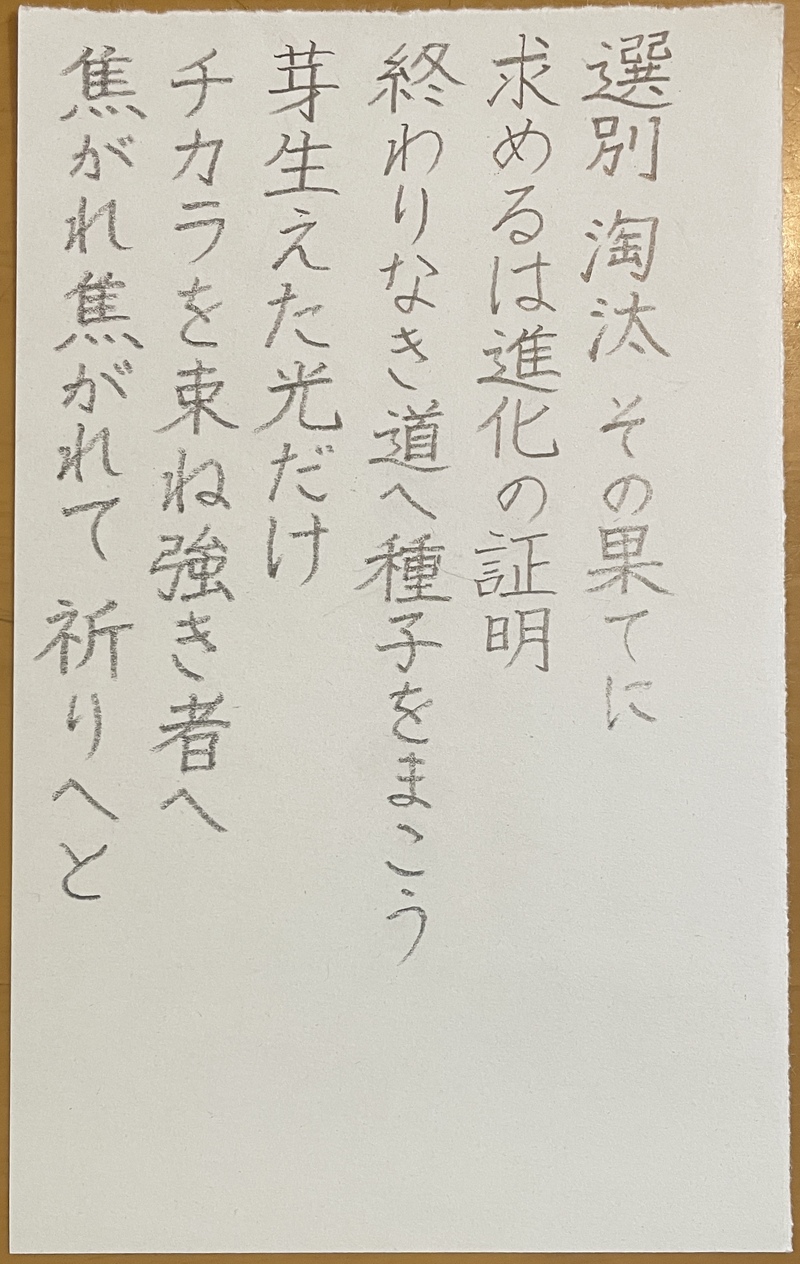 選別 淘汰 その果てに
求めるは進化の証明
終わりなき道へ種子をまこう
芽生えた光だけ
チカラを束ね強き者へ
焦がれ焦がれて 祈りへと